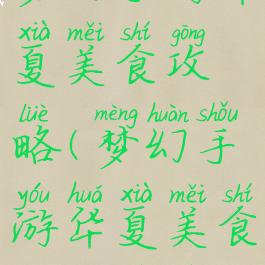 xià měi shí gōng
夏美食攻
lüè mèng huàn shǒu
略(梦幻手
yóu huá xià měi shí
游华夏美食